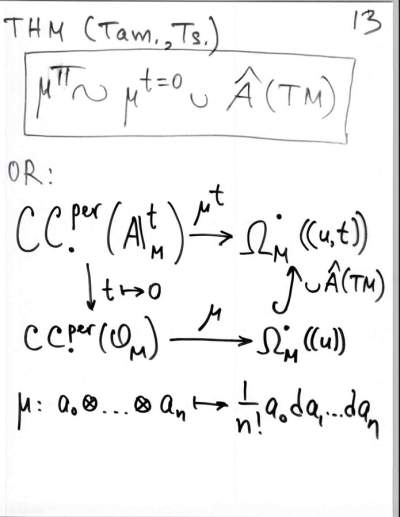 THM (Tam., Ts.) 13
μ^π ~ μ^{t=0} ∪ Â(TM)
OR:
CC.^{per}(𝔸^t_M) →^{μ^t} Ω^•_M((u,t))
↓ t↦0 ↑ ∪Â(TM)
CC.^{per}(𝒪_M) →^{μ} Ω^•_M((u))
μ: a₀⊗...⊗aₙ ↦ 1/n! a₀da₁...daₙ